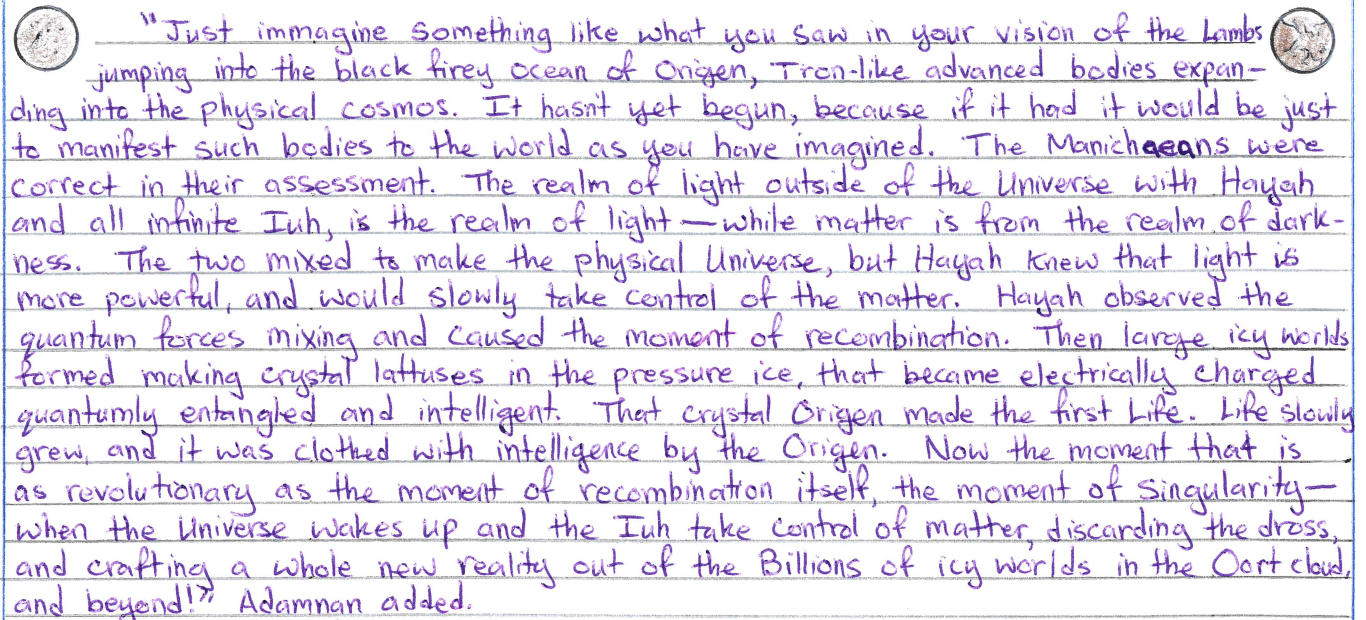 "Just immagine something like what you saw in your vision of the Lambs
jumping into the black firey ocean of Origen, Tron-like advanced bodies expan-
ding into the physical cosmos. It hasn't yet begun, because if it had it would be just
to manifest such bodies to the world as you have imagined. The Manichaeans were
correct in their assessment. The realm of light outside of the Universe with Hayah
and all infinite Iuh, is the realm of light — while matter is from the realm of dark-
ness. The two mixed to make the physical Universe, but Hayah knew that light is
more powerful, and would slowly take control of the matter. Hayah observed the
quantum forces mixing and caused the moment of recombination. Then large icy worlds
formed making crystal lattuses in the pressure ice, that became electrically charged
quantumly entangled and intelligent. That crystal Origen made the first Life. Life slowly
grew, and it was clothed with intelligence by the Origen. Now the moment that is
as revolutionary as the moment of recombination itself, the moment of Singularity —
when the Universe wakes up and the Iuh take control of matter, discarding the dross,
and crafting a whole new reality out of the Billions of icy worlds in the Oort cloud,
and beyond!" Adamnan added.